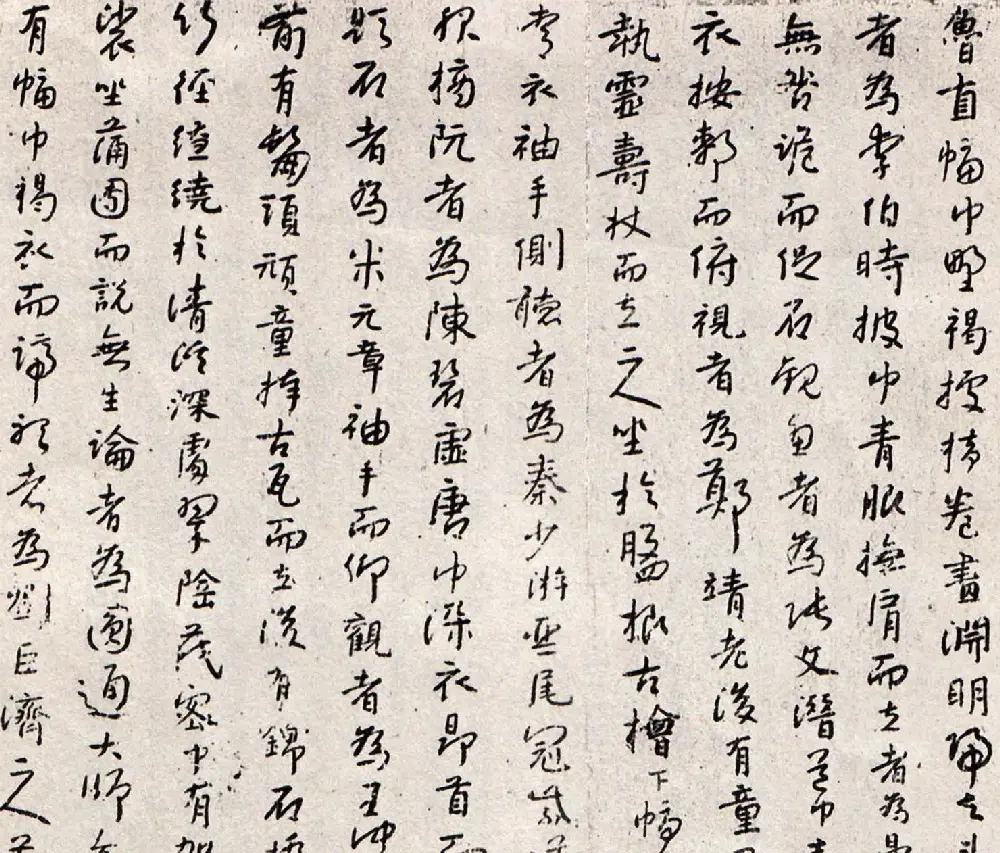 魯直幅巾野褐據橫卷畫淵明歸去
者為李伯時披巾青服撫肩而立者為晁
無咎跪而捉石觀畫者為張文潛道巾素
衣按膝而俯視者為鄭靖老後有童
執靈壽杖而立二人坐於盤根古檜下幅
青衣袖手側聽者為秦少游琴尾冠紫道
服摘阮者為陳碧虛唐巾深衣昂首而
題石者為米元章袖手而仰觀者為王仲
前有髯頭頑童捧古硯而立後有錦石橋
竹徑繚繞於清溪深處翠陰茂密中有架
裟坐蒲團而說無生論者為圓通大師旁
有幅巾褐衣而諦聽者為劉巨濟二人並